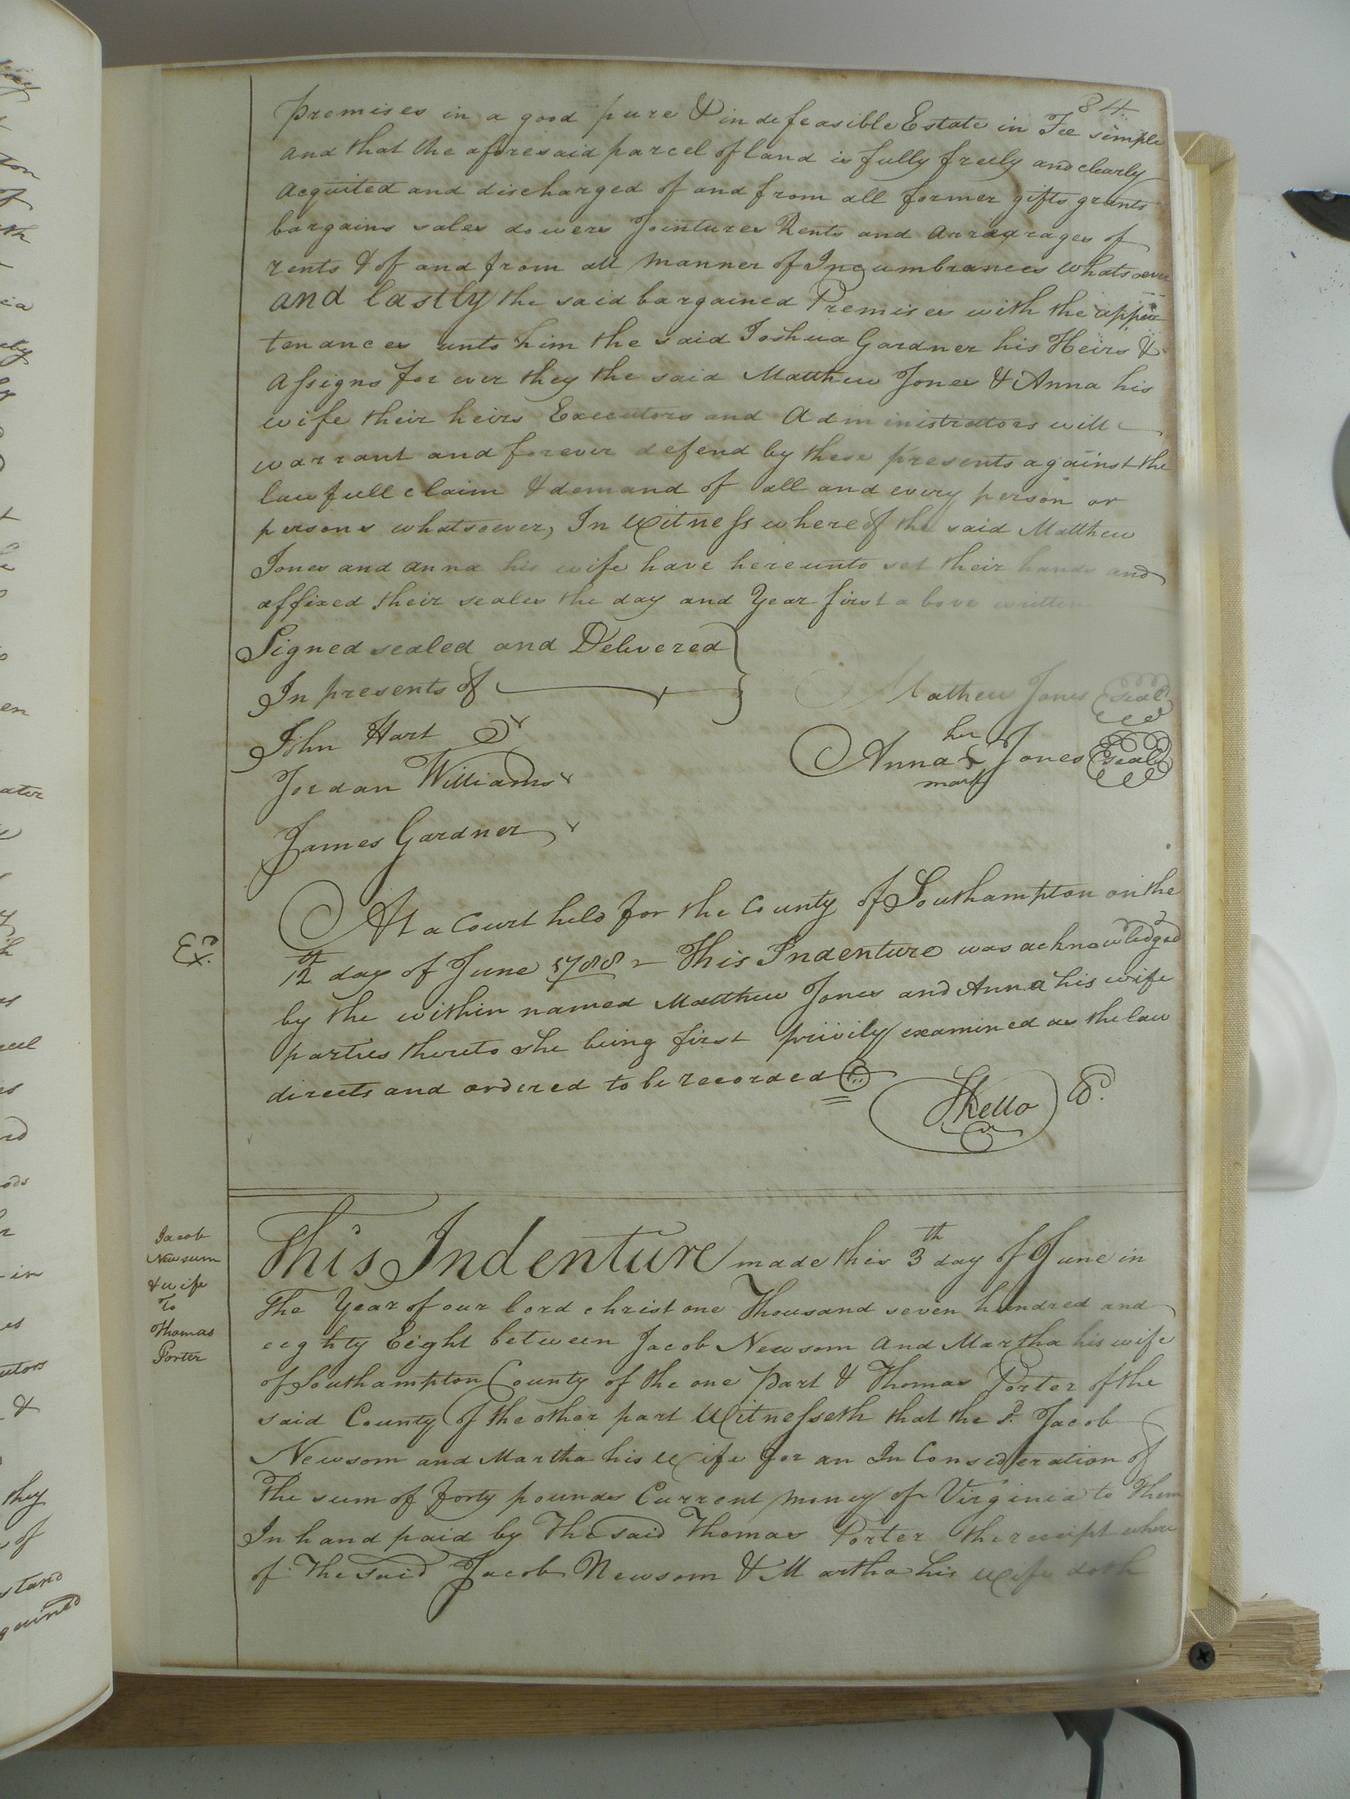 84.
premises in a good pure & indefeasible Estate in Fee simple
and that the aforesaid parcel of land is fully freely and clearly
acquited and discharged of and from all former gifts grants
bargains sales dowers Jointures Rents and arrearages of
rents & of and from all manner of Incumbrances whatsoever
and lastly the said bargained Premises with the appur
tenances unto him the said Joshua Gardner his Heirs &
Assigns for ever they the said Matthew Jones & Anna his
wife their heirs Executors and Administrators will
warrant and forever defend by these presents against the
lawfull claim & demand of all and every person or
persons whatsoever, In Witness whereof the said Matthew
Jones and anna his wife have hereunto set their hands and
affixed their seales the day and Year first above written
Signed sealed and Delivered
In presents of
Mathew Jones seal
John Hart
her
Anna Jones seal
mark
Jordan Williams
James Gardner
At a Court held for the County of Southampton on the
Ex.
12th day of June 1788 - This Indenture was acknowledged
by the within named Matthew Jones and Anna his wife
parties thereto she being first privily examined as the law
directs and ordered to be recorded
Jacob
Newsum
& wife
To
Thomas
Porter
This Indenture made this 3th day of June in
The Year of our Lord christ one Thousand seven hundred and
eeghty Eight between Jacob Newsom and Martha his wife
of Southampton County of the one Part & Thomas Porter of the
said County of the other part Witnesseth that the Sd. Jacob
Newsom and Martha his Wife for an In Consideration of
The sum of forty pounds Current money of Virginia to Them
In hand paid by The said Thomas Porter the receipt where
of The said Jacob Newsom & Martha his Wife doth